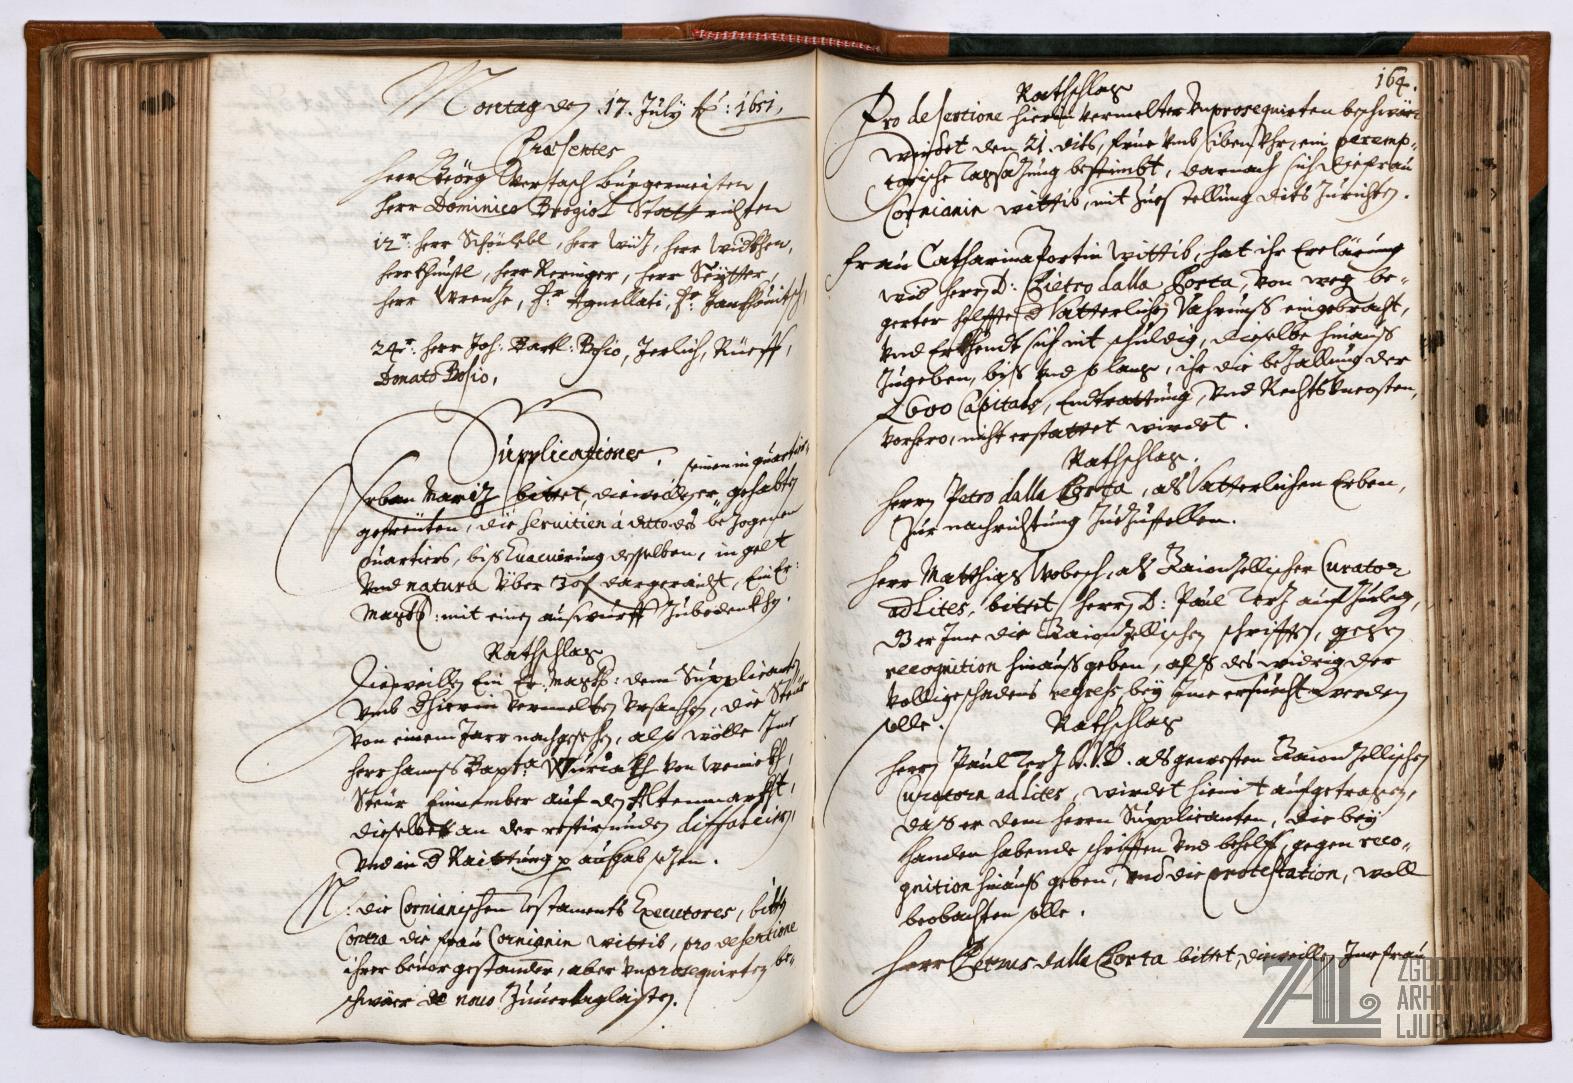 Montag den .17. July Ao: 1651.
Præsentes
Herr Geörg Vertasch Burgermeister,
Herr Dominico Brogiol Stattrichter
12er: herr Schönlebl, herr Wiz, herr Widtkhen,
herr Khunstl, herr Reringer, herr Seytter,
herr Wrenze, Hr Agnellati, Hr Jankhouitsch,
24er: herr Joh: Bartl: Bosio, Jerlich, Rüeff,
Donato Bosio,
Supplicationes.
seinen in quartier
Urban Mariz bittet, dieweil er gehabten
getreüten, die servitien à dato des bezogenen
quartiers, biß Evacuirung desselben, in gelt
und natura über 30 f dargeraicht, Ein Er:
Magist: mit einen außwurff zubedenkhen.
Rathschlag
Dieweillen Ein Er: Magist: dem Supplicanten
umb hierin vermelten Ursachen, die Steur
von einem Jarr nachgesehen, als wölle Ime
herr Hannß Bapta Wuriakh von Weinekh,
Steur Einnember auf den Altenmarkht,
dieselben an der restirunden diffalcirn,
und in d Raittung p außgab sezen.
N: die Cornianischen Testaments Executores, bitten
Contra die frau Cornianin wittib, pro desertione
ihrer beuor gestander, aber unprosequirten be-
schwär de novo zuuertaglaisten.
164.
Rathschlag
Pro desertione hierin vermelter unprosequirten beschwär
wirdet den 21. dits, früe umb siben Uhr, ein peremp-
torische Tagsazung bestimbt, darnach sich die frau
Cornianin wittib, mit zuestellung dits zurichten.
Frau Catharina Portin wittib, hat ihr Erclärung
wid herrn D: Pietro dalla Porta, von weg be-
gerter helffte d Vatterlichen Nahrung eingebracht,
und Erkhendt sich nit schuldig, dieselbe hinauß
zugeben, biß und so lang, ihr die bezallung der
2600 Capitals, Endtrattung, und Rechts uncosten,
vorhero, nicht erstattet wirdet.
Rathschlag.
Herrn Petro dalla Porta, als Vatterlichen Erben,
zur nachrichtung zuezustellen.
Herr Matthias Wobech, als Raionzellischer Curator
ad Lites, bittet herrn D: Paul Terz aufzuleg,
D er Ime die Raionzellischen schrifften, gegen
recognition hinauß geben, alß des widrig der
völlige schadens regress, bey Ime ersuecht werden
solle. Rathschlag
Herrn Paul Terz V.I.D. als gewesten Raionzellischen
Curatorn ad Lites, wirdet hiemit aufgetragen,
daß er dem herrn Supplicanten, die bey
handen habende schrifften und behelf, gegen reco-
gnition hinauß geben, und die protestation, woll
beobachten solle.
Herr Petrus dalla Porta bittet, dieweillen Ime frau
ZAL ZGODOVINSKI
ARHIV
LJUBLJANA